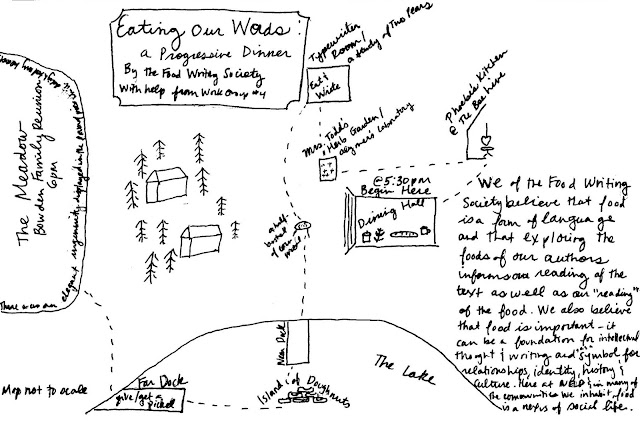 Eating Our Words:
a Progressive Dinner
By The Food Writing Society
With help from Work Group #4
Typewriter
Room/
a study of Two Pears
Eat &
Write
Mrs. Todd's
Herb Garden/
Laboratory
Phoebe's Kitchen
@ The Bee here
@ 5:30 pm
Begin Here
Dining Hall
The Meadow
Bowden Family Reunion
6pm
There was an
elegant ingenuity displayed in the
a half-
bushel
New Dock
The Lake
Island of Doughnuts
Far Dock
give/get a
pickle
Map not to scale
We of the Food Writing
Society believe that food
is a form of language
and that exploring the
foods of our authors
informs our reading of the
text as well as our "reading"
of the food. We also believe
that food is important - it
can be a foundation for intellectual
thought & writing and a symbol for
relationships, identity, history &
culture. Here at & in many of
the communities we inhabit, food
is a nexus of social life.